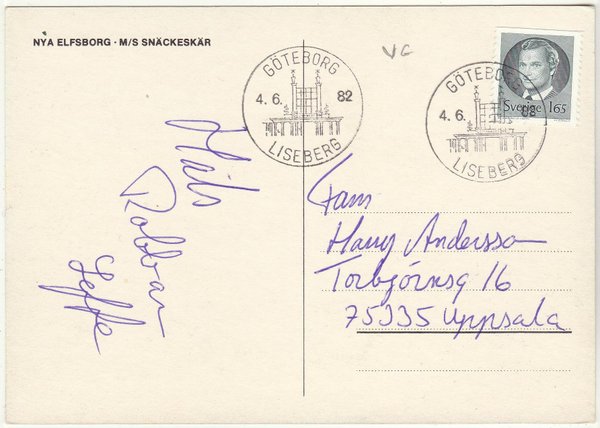 NYA ELFSBORG · M/S SNÄCKESKÄR
VG
GÖTEBORG
4. 6. 82
LISEBERG
GÖTEBORG
4. 6. 82
LISEBERG
Sverige 165
Robban
Leffe
Fam
Harry Andersson
Torbjörnsg 16
75335 Uppsala